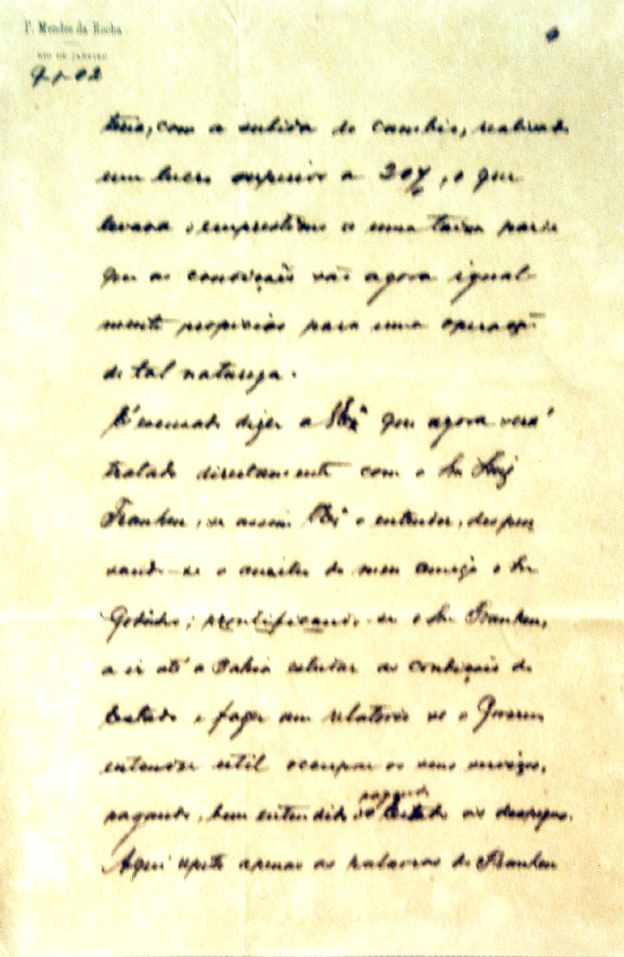 P. Mendes da Rocha
RIO DE JANEIRO
9-1-02
teria, com a subida do cambio, realisado
um lucro superior a 20%, o que
levava o emprestimo a uma taxa
que as condições são agora igual-
mente propicias para uma operação
de tal natureza.
É escusado dizer a VExª que agora será
tratado directamente com o Snr Luiz
Franken, se assim VExª o entender, dispen
sando-se o auxilio do meu amigo o Snr
promptificando-se o Snr Franken,
a ir até a Bahia estudar as condições do
Estado e fazer um relatorio se o Governo
entender util occupar os seus serviços,
pagando, bem entendido o Estado as despezas.
Aqui repito apenas as palavras do Franken